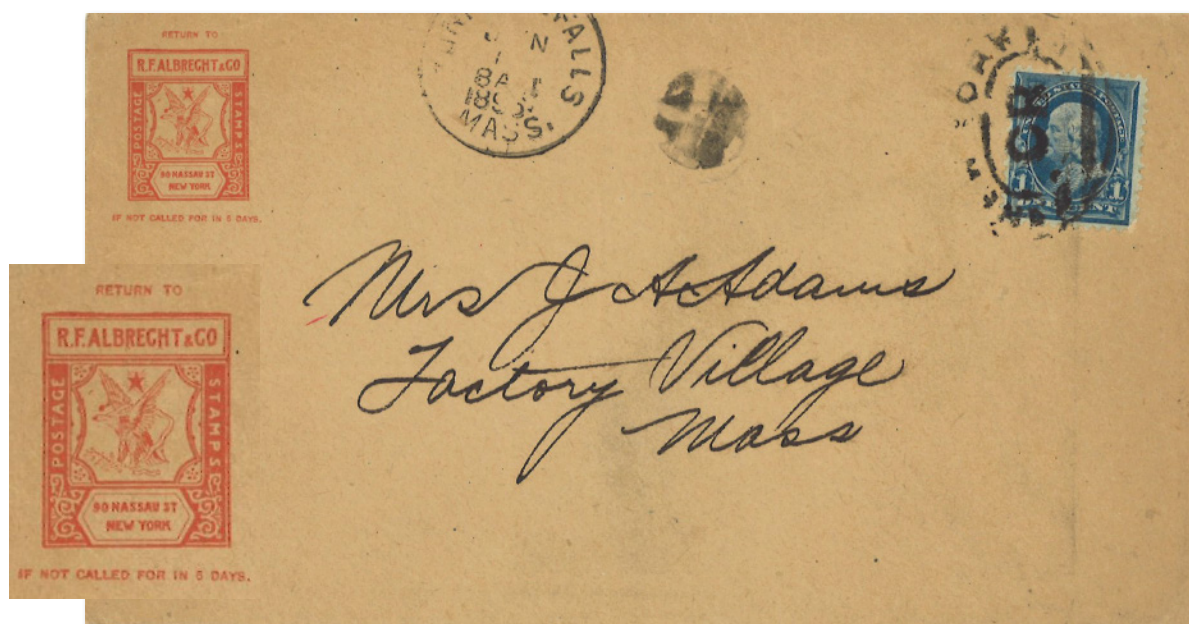 RETURN TO
R.F. ALBRECHT & CO
POSTAGE STAMPS
90 NASSAU ST
NEW YORK
IF NOT CALLED FOR IN 5 DAYS.
FALLS
MASS.
1
1
Mrs J A Adams
Factory Village
Mass
RETURN TO
R.F. ALBRECHT & CO
POSTAGE STAMPS
90 NASSAU ST
NEW YORK
IF NOT CALLED FOR IN 5 DAYS.